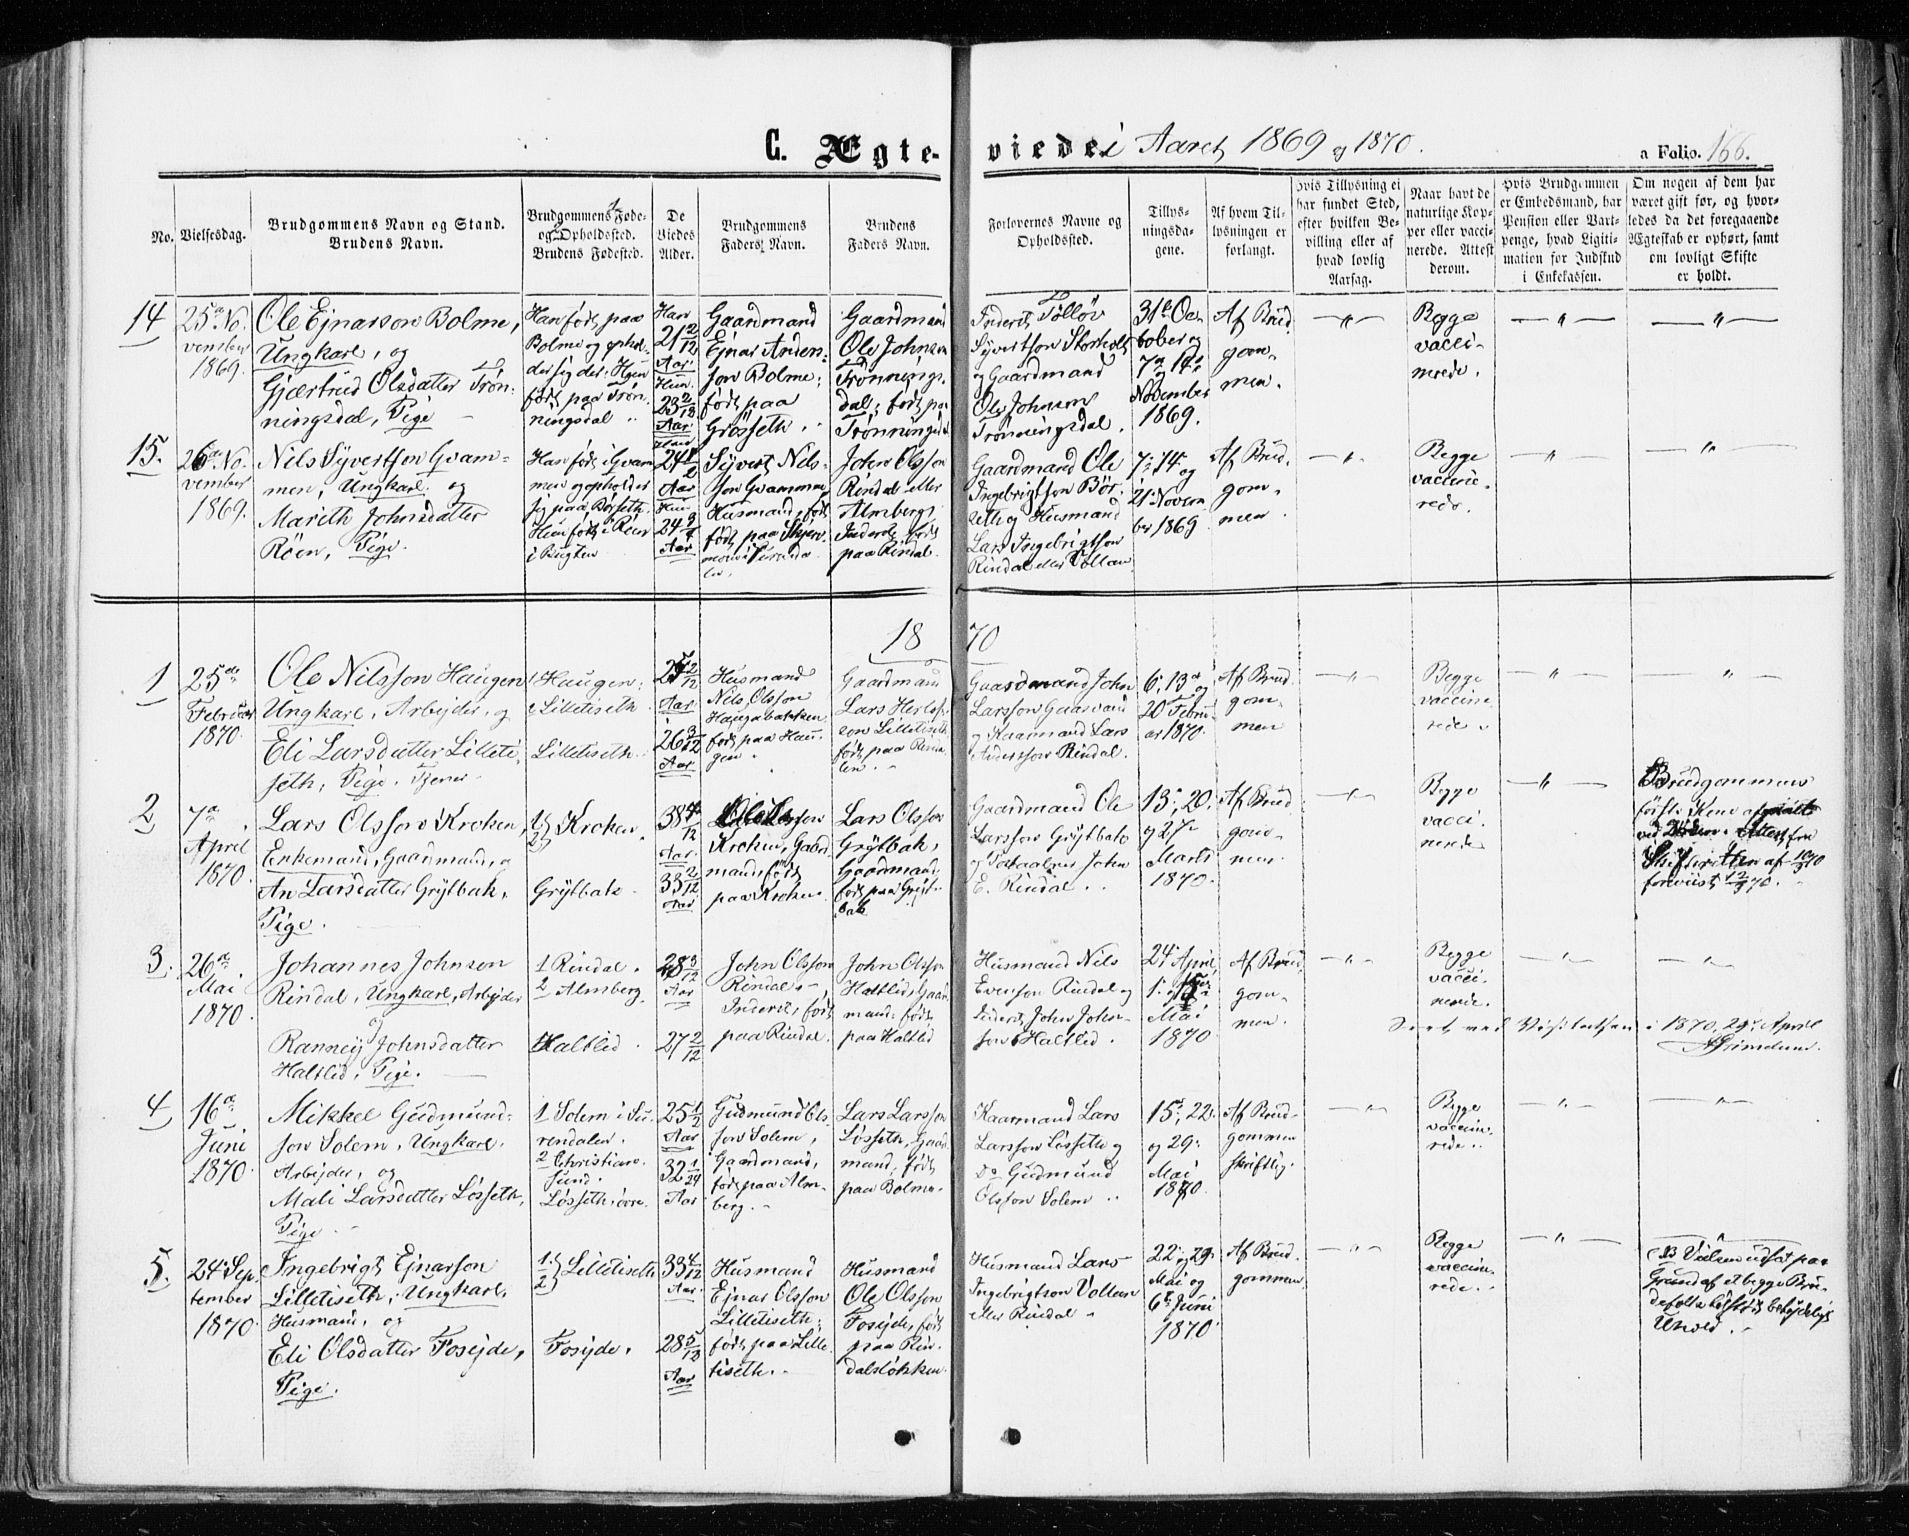 C. Ægte-
viede i Aaret 1869 og 1870.
a Folio. 166.
No.
Vielsesdag.
Brudgommens Navn og Stand.
Brudens Navn.
Brudgommens Føde-
og Opholdssted.
Brudens Fødested.
De
Viedes
Alder.
Brudgommens
Faders Navn.
Brudens
Faders Navn.
Forlovernes Navne og
Opholdssted.
Tillys-
ningsda-
gene.
Af hvem Til-
lysningen er
forlangt.
Hvis Tillysning ei
har fundet Sted,
efter hvilken Be-
villing eller af
hvad lovlig
Aarsag.
Naar havt de
naturlige Kop-
per eller vacci-
nerede. Attest
derom.
Hvis Brudgommen
er Embedsmand, har
Pension eller Vart-
penge, hvad Ligiti-
mation for Indskud
i Enkekassen.
Om nogen af dem har
været gift før, og hvor-
ledes da det foregaaende
Ægteskab er ophørt, samt
om lovligt Skifte
er holdt.
14
25de No-
vember
1869.
Ole Ejnarson Bolme,
Ungkarl, og
Gjærtrud Olsdatter Trøn-
ningsdal, Pige
Han født paa
Bolme og ophol-
der sig der: Hun
født paa Trøn-
ningsdal
Han
21 2/12
Aar
Hun
23 2/12
Aar
Gaardmand
Ejnar Anden-
son Bolme;
født paa
Grösseth.
Gaardmand
Ole Johnsen
Trønnings-
dal; født paa
Trønningsdal
Inderst Tølløv
Syvertson Storholt
og Gaardmand
Ole Johnsen
Trønningsdal.
31te Oc-
tober og
7de og 14de
November
1869.
Af Brud
gom-
men.
Begge
vacci-
nrede.
15.
26de No-
vember
1869.
Nils Syvertson Gvam-
men, Ungkarl og
Marith Johnsdatter
Röen, Pige.
Han født i Gvam
men og opholder
sig paa Børseth.
Hun født i Röen
i Bugten
24 1/2
Aar
Hun
24 3/4
Aar
Syvert Nils-
son Gvammen
Husmand, født
født paa Skjer-
John Olsson
Rindal eller
Almberg;
Inderst, født
paa Rindal.
Gaardmand Ole
Ingebrigtson Bör-
seth og Husmand
Lars Ingebrigtson
Rindal eller Vollan.
7de 14de og
21 Novem
ber 1869.
Af Brud-
gom-
men.
Begge
vaccine-
rede.
1870
1
25de
Februar
1870.
Ole Nilsson Haugen
Ungkarl, Arbejder, og
Eli Larsdatter Lilleti-
seth, Pige. Tjener
1 Haugen:
2 Lilletiseth.
Lilletiseth.
25 2/12
Aar
26 3/12
Aar
Husmand
Nils Olsson
Haugabakken
født paa Hau-
gen.
Gaardmand
Lars Herlsf-
son Lilletiseth
født paa Rinda
len.
Gaardmand John
Larsson Gaasvand
og Kaarmand Lars
Anderson Rindal.
6, 13de og
20 Febru-
ar 1870.
Af Brud
gom-
men
Begge
vaccine
rede.
2
7de
April
1870.
Lars Olsson Kroken,
Enkemand, Gaardmand, og
An Larsdatter Grytbak,
Pige.
1 2 Kroken.
Grytbak.
38 4/12
Aar
33 2/12
Aar
Ole Larsson
Kroken, Gaard
mand, født
paa Kroken.
Lars Olsson
Grytbak,
Gaardmand,
født paa Gryt-
bak
Gaardmand Ole
Larsson Grytbak
og John
E. Rindal.
13, 20.
og 27de
Marts
1870.
Af Brud
gom-
men.
Begge
vacci-
nerede.
Brudgommens
förste Kone afgaaet
ved Döden. Attest fra
Skifteretten af 10/3 70
foreviist 12/3 70.
3.
26de
Mai
1870.
Johannes Johnsen
Rindal, Ungkarl, Arbejder
og
Ranney Johnsdatter
Haltlid, Pige.
1 Rindal.
2 Almberg.
Haltlid.
28 3/12
Aar
27 2/12
John Olsson
Rindal
Inderst, født
paa Rindal.
John Olsson
Haltlid, Gaar
mand: født
paa Haltlid
Husmand Nils
Evenson Rindal og
Inderst John John-
son Haltlid.
24 April,
1. og 15
Mai
1870.
Af Brud
gom-
men.
Begge
vacci-
nerede.
Seet ved Visitatsen i 1870, 29de April
Grimelund.
4
16de
Juni
1870.
Mikkel Gudmund-
son Solem, Ungkarl.
Arbejder, og
Mali Larsdatter Løsseth,
Pige.
1 Solem i Su-
rendalen.
2 Christian-
sund.
Løsseth, øvre
25 1/2
Aar
32 1/24
Aar
Gudmund Ols-
son Solem,
Gaardmand,
født paa Alm-
berg.
Lars Larsson
Løsseth, Gaard
mand, født
paa Bolme.
Kaarmand Lars
Larsson Løsseth og
Do Gudmund
Olsson Solem
15, 22.
og 29.
Mai
1870.
Af Brud-
gommen
skriftlig.
Begge
vaccin-
rede.
5.
24de Sep
tember
1870.
Ingebrigt Ejnarson
Lilletiseth, Ungkarl,
Husmand, og
Eli Olsdatter Fosejde,
Pige.
1 2 Lilletiseth
Fosejde.
33 4/12
Aar
28 5/12
Aar
Husmand
Ejnar Olsson
Lilletiseth;
født paa Lille
tiseth.
Husmand
Ole Olsson
Fosejde, født
paa Rin-
dalsløkken.
Husmand Lars
Ingebrigtson Vollan
eller Rindal
22 og 29.
Mai og
6te Juni
1870.
Af Brud
gommen.
Begge
vaccin-
rede.
NB Vielsen udsat paa
Grund af et begge Bru-
defolk
Uheld.